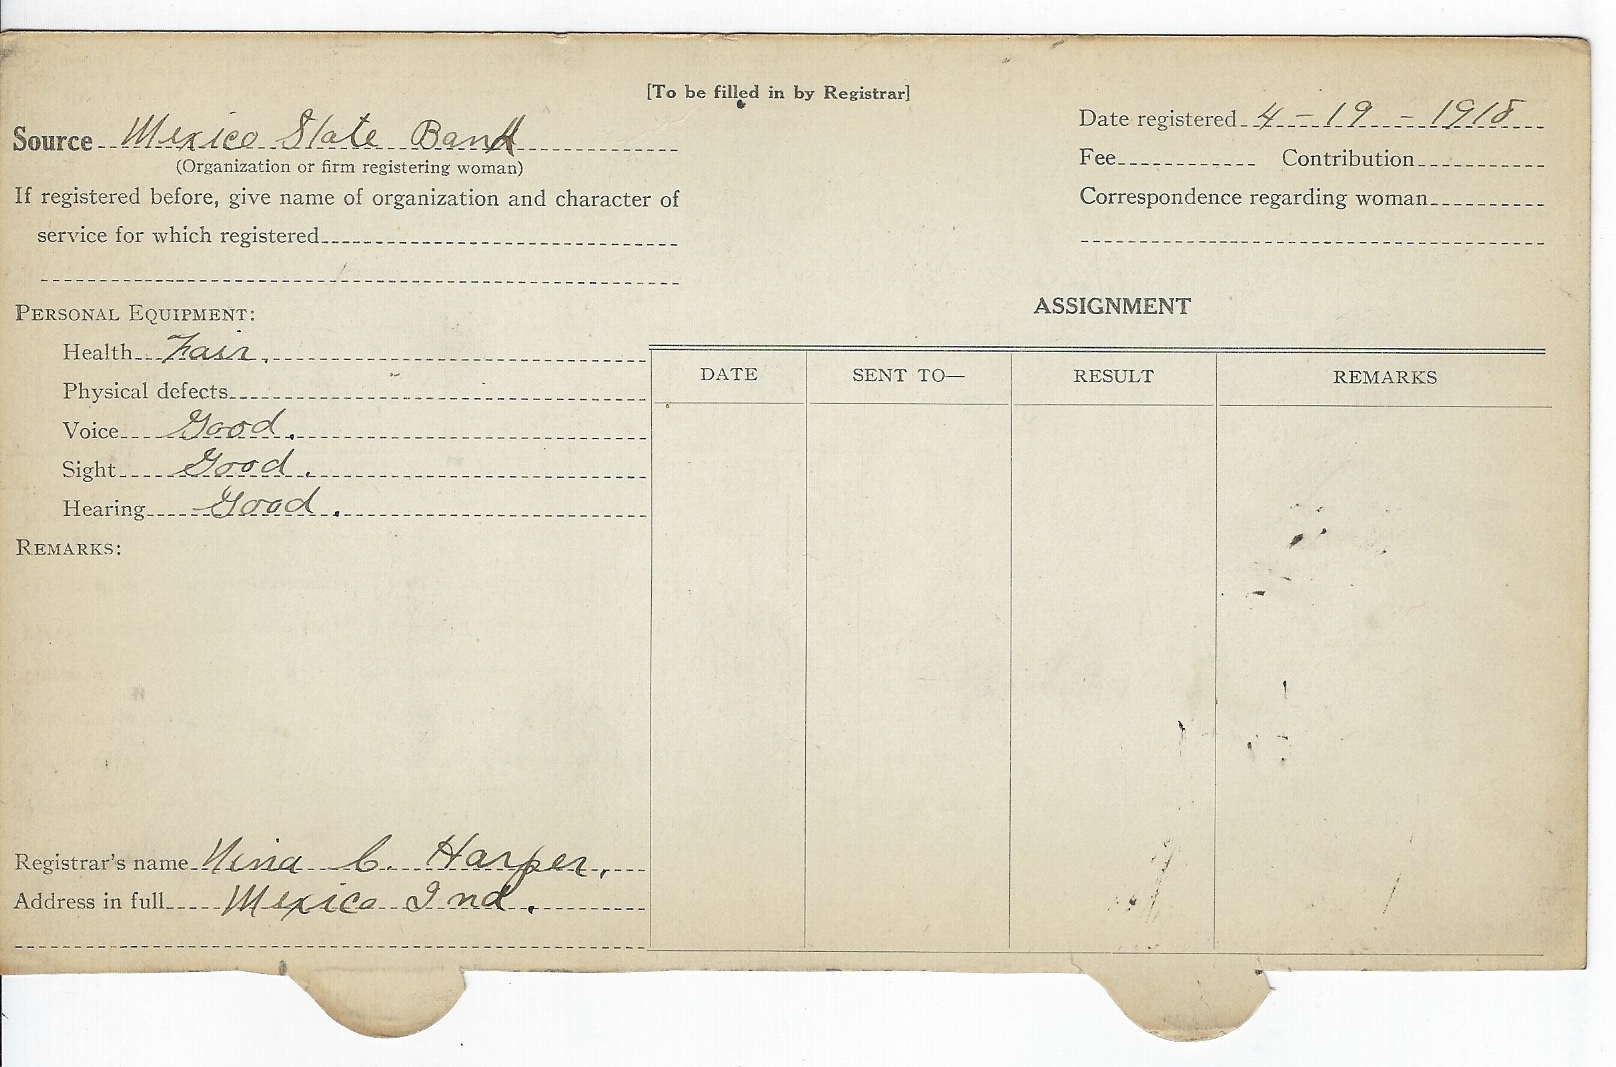 [To be filled in by Registrar]
Source Mexico State Bank
(Organization or firm registering woman)
If registered before, give name of organization and character of
service for which registered
Date registered 4-19-1918
Fee Contribution
Correspondence regarding woman
PERSONAL EQUIPMENT:
Health Fair.
Physical defects
Voice Good.
Sight Good.
Hearing Good.
REMARKS:
Registrar's name Nina C. Harper.
Address in full Mexico Ind.
ASSIGNMENT
DATE SENT TO— RESULT REMARKS